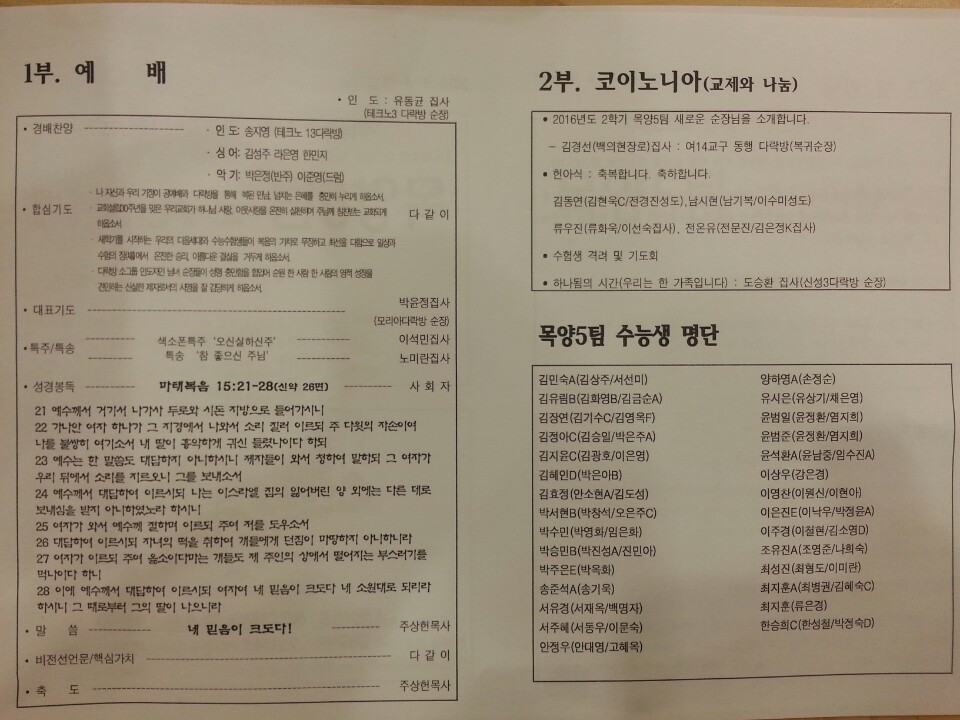 1부. 예 배
• 인 도 : 유동균 집사
(테크노3 다락방 순장)
• 경배찬양 · 인 도: 송지영 (테크노 13다락방)
· 싱 어: 김성주 라은영 한민지
· 악 기: 박은정(반주) 이준명(드럼)
• 합심기도 다 같 이
· 나 자신과 우리 가정이 공예배와 다락방을 통해 복된 만남, 넘치는 은혜를 충만히 누리게 하옵소서.
· 교회설립30주년을 맞은 우리교회가 하나님 사랑, 이웃사랑을 온전히 실천하며 주님께 칭찬받는 교회되게
하옵소서
· 새학기를 시작하는 우리의 다음세대와 수능수험생들이 복음의 가치로 무장하고 최선을 다함으로 일상과
수험의 장(場)에서 온전한 승리, 아름다운 결실을 거두게 하옵소서.
· 다락방 소그룹 인도자인 남녀 순장들이 성령 충만함을 힘입어 순원 한 사람 한 사람의 영적 성장을
견인하는 신실한 제자로서의 사명을 잘 감당하게 하옵소서.
• 대표기도 박윤정집사
(모리아다락방 순장)
• 특주/특송 색소폰특주 '오신실하신주' 이석민집사
특송 '참 좋으신 주님' 노미란집사
• 성경봉독 마태복음 15:21-28(신약 26면) 사 회 자
21 예수께서 거기서 나가사 두로와 시돈 지방으로 들어가시니
22 가나안 여자 하나가 그 지경에서 나와서 소리 질러 이르되 주 다윗의 자손이여
나를 불쌍히 여기소서 내 딸이 흉악하게 귀신 들렸나이다 하되
23 예수는 한 말씀도 대답하지 아니하시니 제자들이 와서 청하여 말하되 그 여자가
우리 뒤에서 소리를 지르오니 그를 보내소서
24 예수께서 대답하여 이르시되 나는 이스라엘 집의 잃어버린 양 외에는 다른 데로
보내심을 받지 아니하였노라 하시니
25 여자가 와서 예수께 절하며 이르되 주여 저를 도우소서
26 대답하여 이르시되 자녀의 떡을 취하여 개들에게 던짐이 마땅하지 아니하니라
27 여자가 이르되 주여 옳소이다마는 개들도 제 주인의 상에서 떨어지는 부스러기를
먹나이다 하니
28 이에 예수께서 대답하여 이르시되 여자여 네 믿음이 크도다 네 소원대로 되리라
하시니 그 때로부터 그의 딸이 나으니라
• 말 씀 네 믿음이 크도다! 주상헌목사
• 비전선언문/핵심가치 다 같 이
• 축 도 주상헌목사
2부. 코이노니아(교제와 나눔)
• 2016년도 2학기 목양5팀 새로운 순장님을 소개합니다.
– 김경선(백의현장로)집사 : 여14교구 동행 다락방(복귀순장)
• 헌아식 : 축복합니다. 축하합니다.
김동연(김현욱C/전경진성도),남시현(남기복/이수미성도)
류우진(류화욱/이선숙집사), 전온유(전문진/김은정K집사)
• 수험생 격려 및 기도회
• 하나됨의 시간(우리는 한 가족입니다) : 도승환 집사(신성3다락방 순장)
목양5팀 수능생 명단
김민숙A(김상주/서선미)
김유림B(김화영B/김금순A)
김장연(김기수C/김영옥F)
김정아C(김승일/박은주A)
김지윤C(김광호/이은영)
김혜민D(박은아B)
김효정(안소현A/김도성)
박서현B(박창석/오은주C)
박수민(박영화/임은화)
박승민B(박진성A/진민아)
박주은E(박옥화)
송준석A(송기욱)
서유경(서재옥/백명자)
서주혜(서동우/이문숙)
안정우(안대영/고혜옥)
양하영A(손정순)
유시은(유상기/채은영)
윤범일(윤정환/염지희)
윤범준(윤정환/염지희)
윤석환A(윤남중/임수진A)
이상우(강은경)
이영찬(이원신/이현아)
이은진E(이낙우/박정윤A)
이주경(이절현/김소영D)
조유진A(조명준/나희숙)
최성진(최형도/이미란)
최지훈A(최병권/김혜숙C)
최지훈(류은경)
한승희C(한성철/박정숙D)